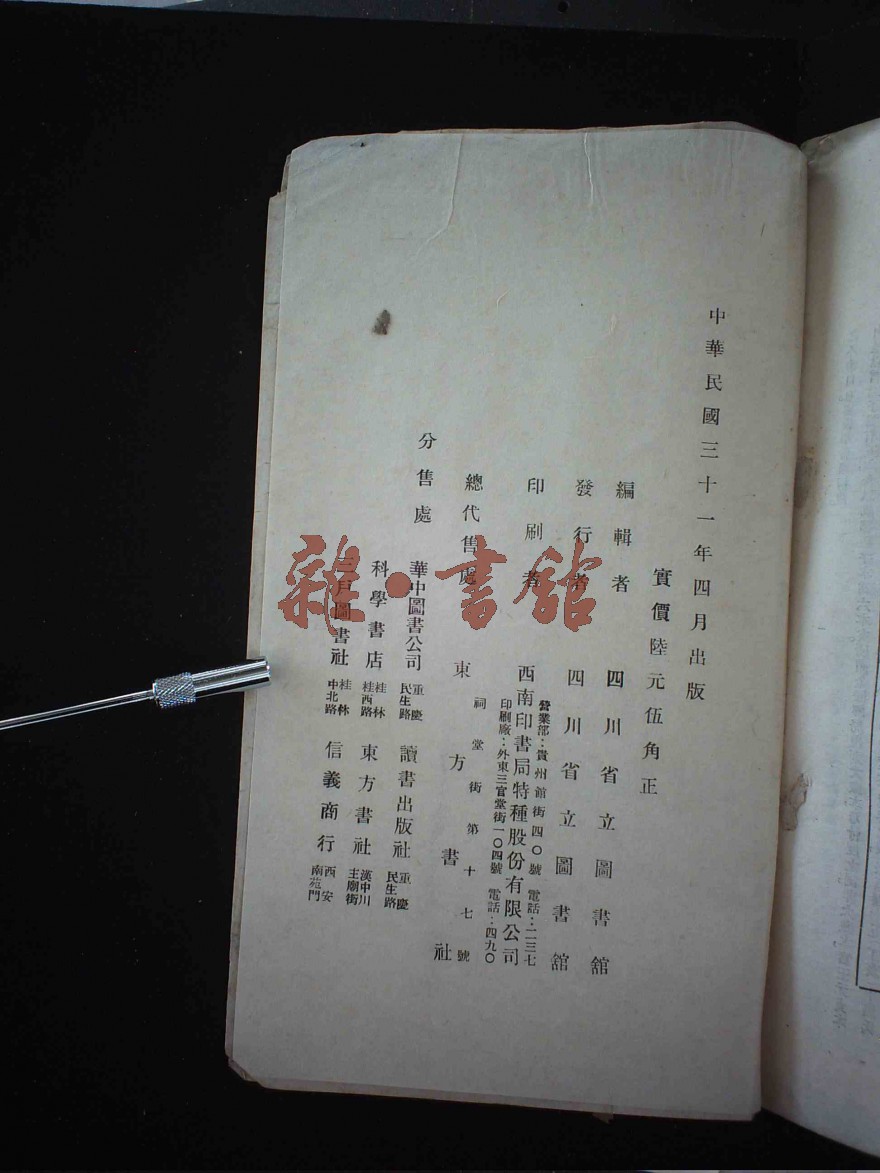 中華民國三十一年四月出版
實價陸元伍角正
編輯者 四川省立圖書館
發行者 四川省立圖書館
印刷者 西南印書局特種股份有限公司
營業部：貴州館街四〇號 電話：二三七
印刷廠：外東三官堂街一〇四號 電話：四九〇
總代售處 東方書社
祠堂街第十七號
分售處 華中圖書公司 重慶民生路 讀書出版社 重慶民生路
科學書店 桂林桂西路 東方書社 漢中川主廟街
三戶圖書社 桂林中北路 信義商行 西安南苑門
雜·書館